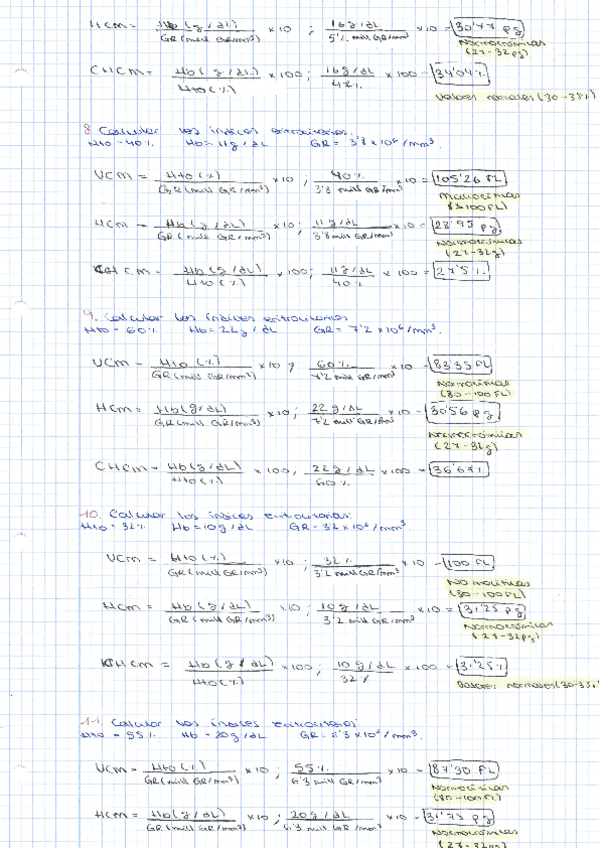 HCM = Hb (g/dL) / GR (mill GR/mm³) × 10 ; 16 g/dL / 5'2 mill GR/mm³ × 10 = 30'77 pg
Normocrómicas
(27-32pg)
CHCM = Hb (g/dL) / Hto (%) × 100 ; 16 g/dL / 47% × 100 = 34'04%
Valores normales (30-35%)
8. Calcular los índices eritrocitarios:
Hto = 40% Hb = 11 g/dL GR = 3'8 × 10⁶/mm³
VCM = Hto (%) / GR (mill GR/mm³) × 10 ; 40% / 3'8 mill GR/mm³ × 10 = 105'26 FL
100 FL)
HCM = Hb (g/dL) / GR (mill GR/mm³) × 10 ; 11 g/dL / 3'8 mill GR/mm³ × 10 = 28'95 pg
Normocrómicas
(27-32g)
CHCM = Hb (g/dL) / Hto (%) × 100 ; 11 g/dL / 40% × 100 = 27'5%
9. Calcular los índices eritrocitarios
Hto = 60% Hb = 22 g/dL GR = 7'2 × 10⁶/mm³
VCM = Hto (%) / GR (mill GR/mm³) × 10 ; 60% / 7'2 mill GR/mm³ × 10 = 83'33 FL
Normocíticas
(80-100 FL)
HCM = Hb (g/dL) / GR (mill GR/mm³) × 10 ; 22 g/dL / 7'2 mill GR/mm³ × 10 = 30'56 pg
Normocrómicas
(27-32g)
CHCM = Hb (g/dL) / Hto (%) × 100 ; 22 g/dL / 60% × 100 = 36'67%
10. Calcular los índices eritrocitarios:
Hto = 32% Hb = 10 g/dL GR = 3'2 × 10⁶/mm³
VCM = Hto (%) / GR (mill GR/mm³) × 10 ; 32% / 3'2 mill GR/mm³ × 10 = 100 FL
Normocíticas
(80-100 FL)
HCM = Hb (g/dL) / GR (mill GR/mm³) × 10 ; 10 g/dL / 3'2 mill GR/mm³ × 10 = 31'25 pg
Normocrómicas
(27-32pg)
CHCM = Hb (g/dL) / Hto (%) × 100 ; 10 g/dL / 32% × 100 = 31'25%
Valores normales (30-35%)
11. Calcular los índices eritrocitarios:
Hto = 55% Hb = 20 g/dL GR = 6'3 × 10⁶/mm³
VCM = Hto (%) / GR (mill GR/mm³) × 10 ; 55% / 6'3 mill GR/mm³ × 10 = 87'30 FL
Normocíticas
(80-100 FL)
HCM = Hb (g/dL) / GR (mill GR/mm³) × 10 ; 20 g/dL / 6'3 mill GR/mm³ × 10 = 31'75 pg
Normocrómicas
(27-32pg)